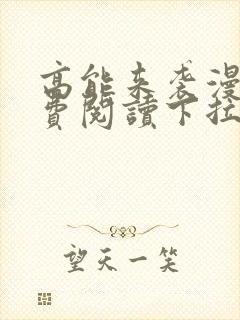 高能来袭漫
费阅读下拉
望天一笑